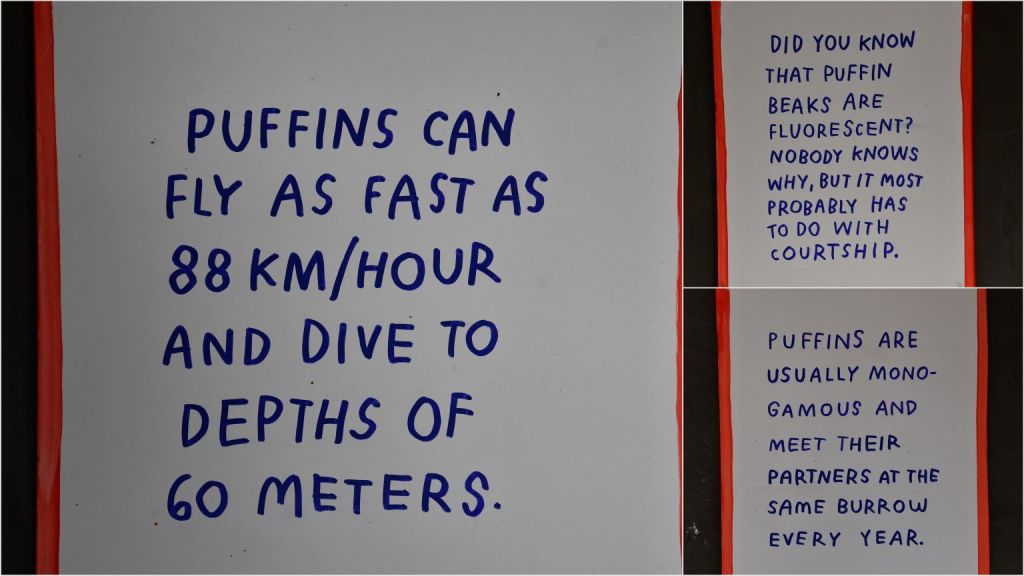 PUFFINS CAN
FLY AS FAST AS
88 KM/HOUR
AND DIVE TO
DEPTHS OF
60 METERS.
DID YOU KNOW
THAT PUFFIN
BEAKS ARE
FLUORESCENT?
NOBODY KNOWS
WHY, BUT IT MOST
PROBABLY HAS
TO DO WITH
COURTSHIP.
PUFFINS ARE
USUALLY MONO-
GAMOUS AND
MEET THEIR
PARTNERS AT THE
SAME BURROW
EVERY YEAR.